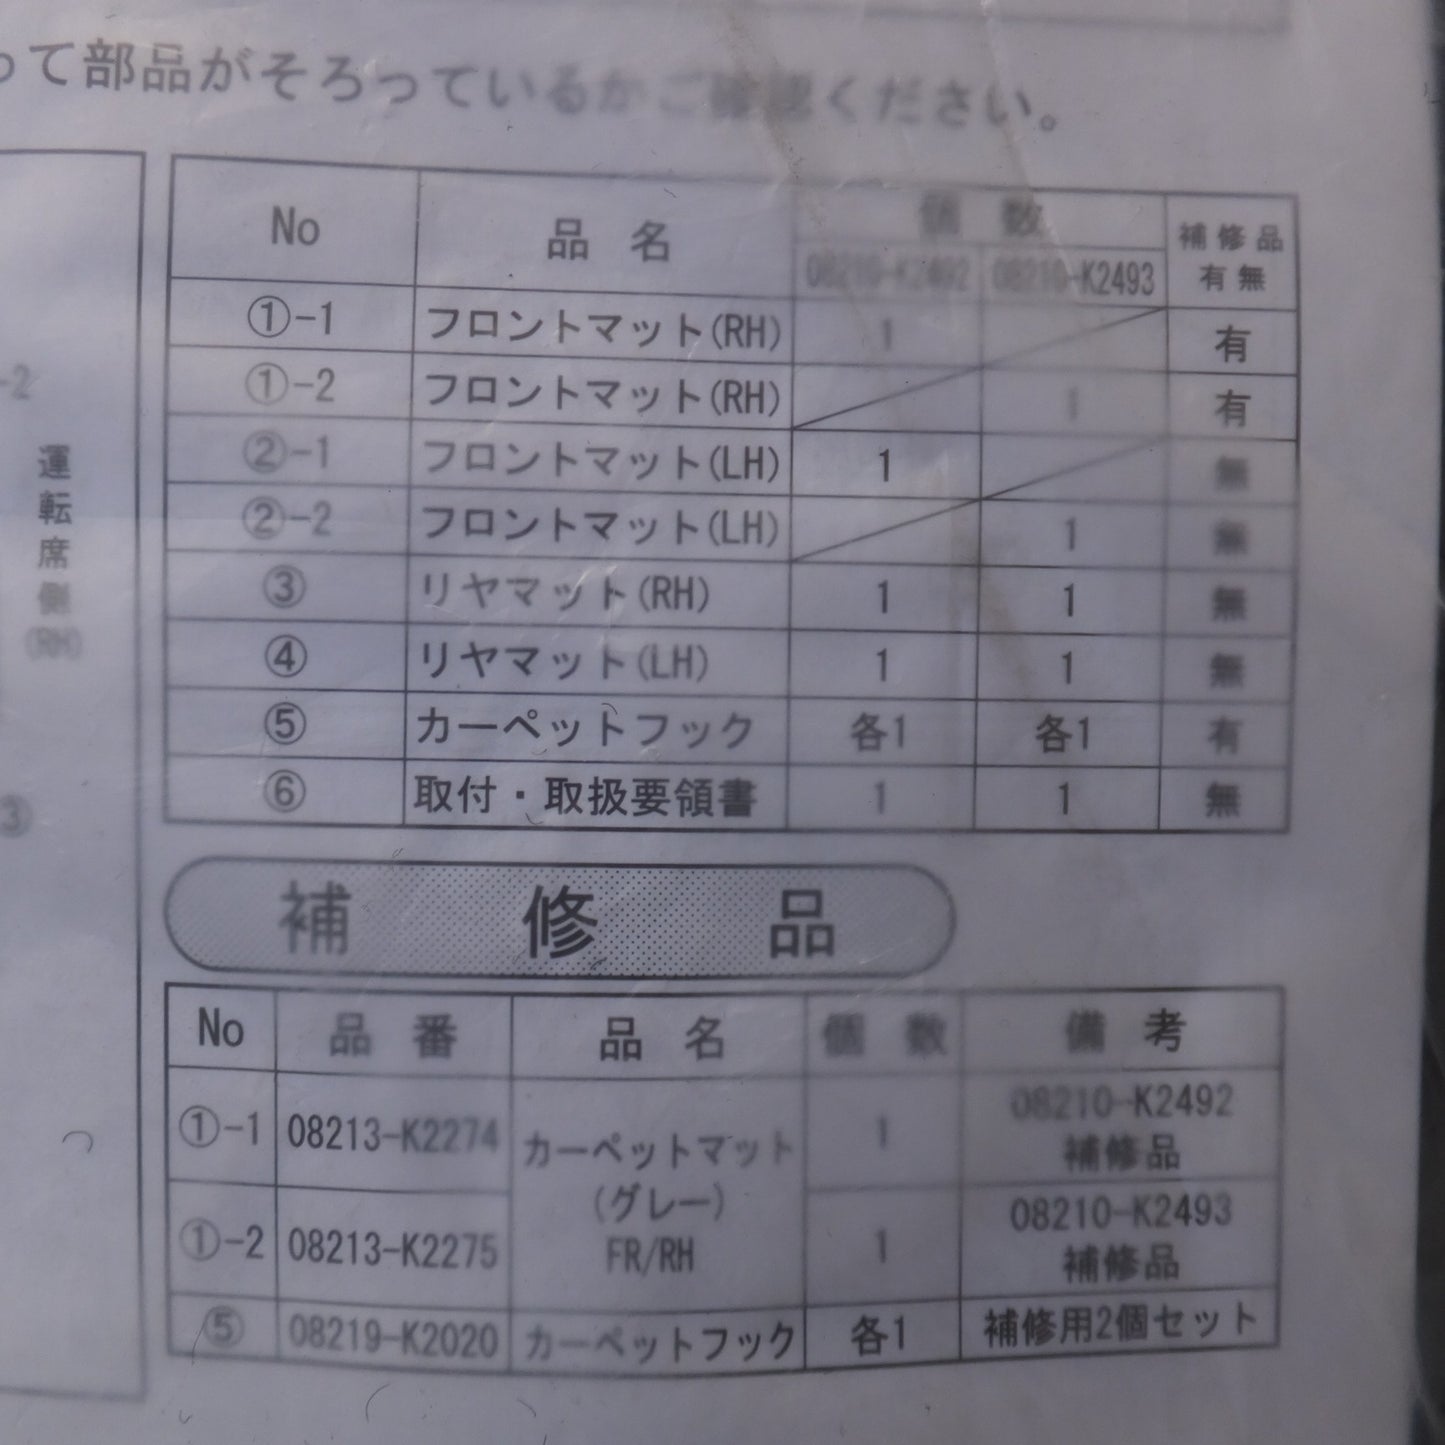 って部品がそろっているかご確認ください。
-2
運転席側
(RH)
③
No 品名 個数 補修品有無
08210-K2492 08210-K2493
①-1 フロントマット(RH) 1 有
①-2 フロントマット(RH) 1 有
②-1 フロントマット(LH) 1 無
②-2 フロントマット(LH) 1 無
③ リヤマット(RH) 1 1 無
④ リヤマット(LH) 1 1 無
⑤ カーペットフック 各1 各1 有
⑥ 取付・取扱要領書 1 1 無
補修品
No 品番 品名 個数 備考
①-1 08213-K2274 1 08210-K2492
補修品
カーペットマット
(グレー)
FR/RH
①-2 08213-K2275 1 08210-K2493
補修品
⑤ 08219-K2020 カーペットフック 各1 補修用2個セット